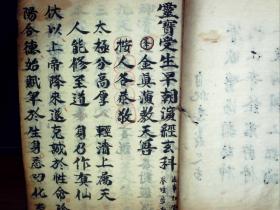 靈寳受生早朝演經玄科
金眞演教天尊
人各恭敬
太極分高厚 輕清上属天
人能修至道 身乃作真仙
伏以上帝降衷 克誠於性命
陽合德始賦畀於生身 幻化